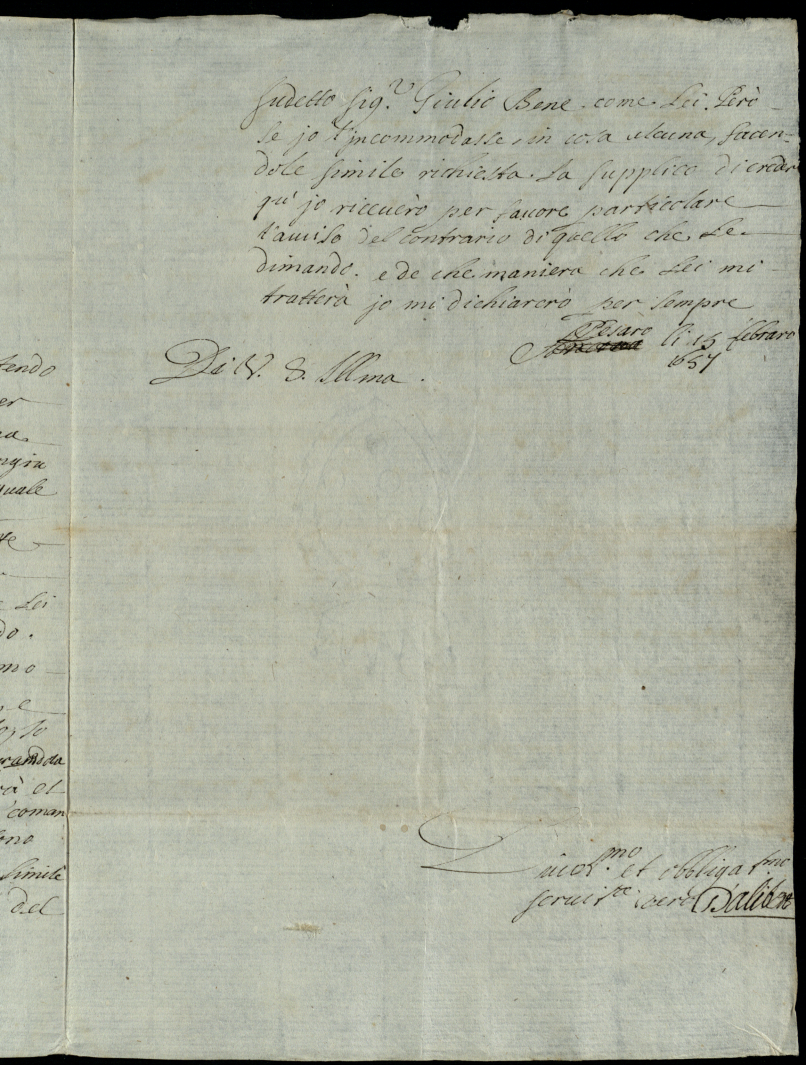 tendo
er
na
ngia
quale
te
Lei
do.
mo
e
lo, so
randola
rà et
coman
ono
simile
del
sudetto Sig.r Giulio Bene come Lei. Però
se jo l'incommodasse in cosa alcuna, facen-
dole simile richiesta La supplico di creder
qu' jo riceuerò per fauore particolare
l'auuiso del contrario di quello che Le
dimando. e de che maniera che Lei mi
tratterà jo mi dichiarerò per sempre
Pesaro li 15 febraro
1657
Di V. S. Illma.
et obbligat.mo
seruit.re D'alibert